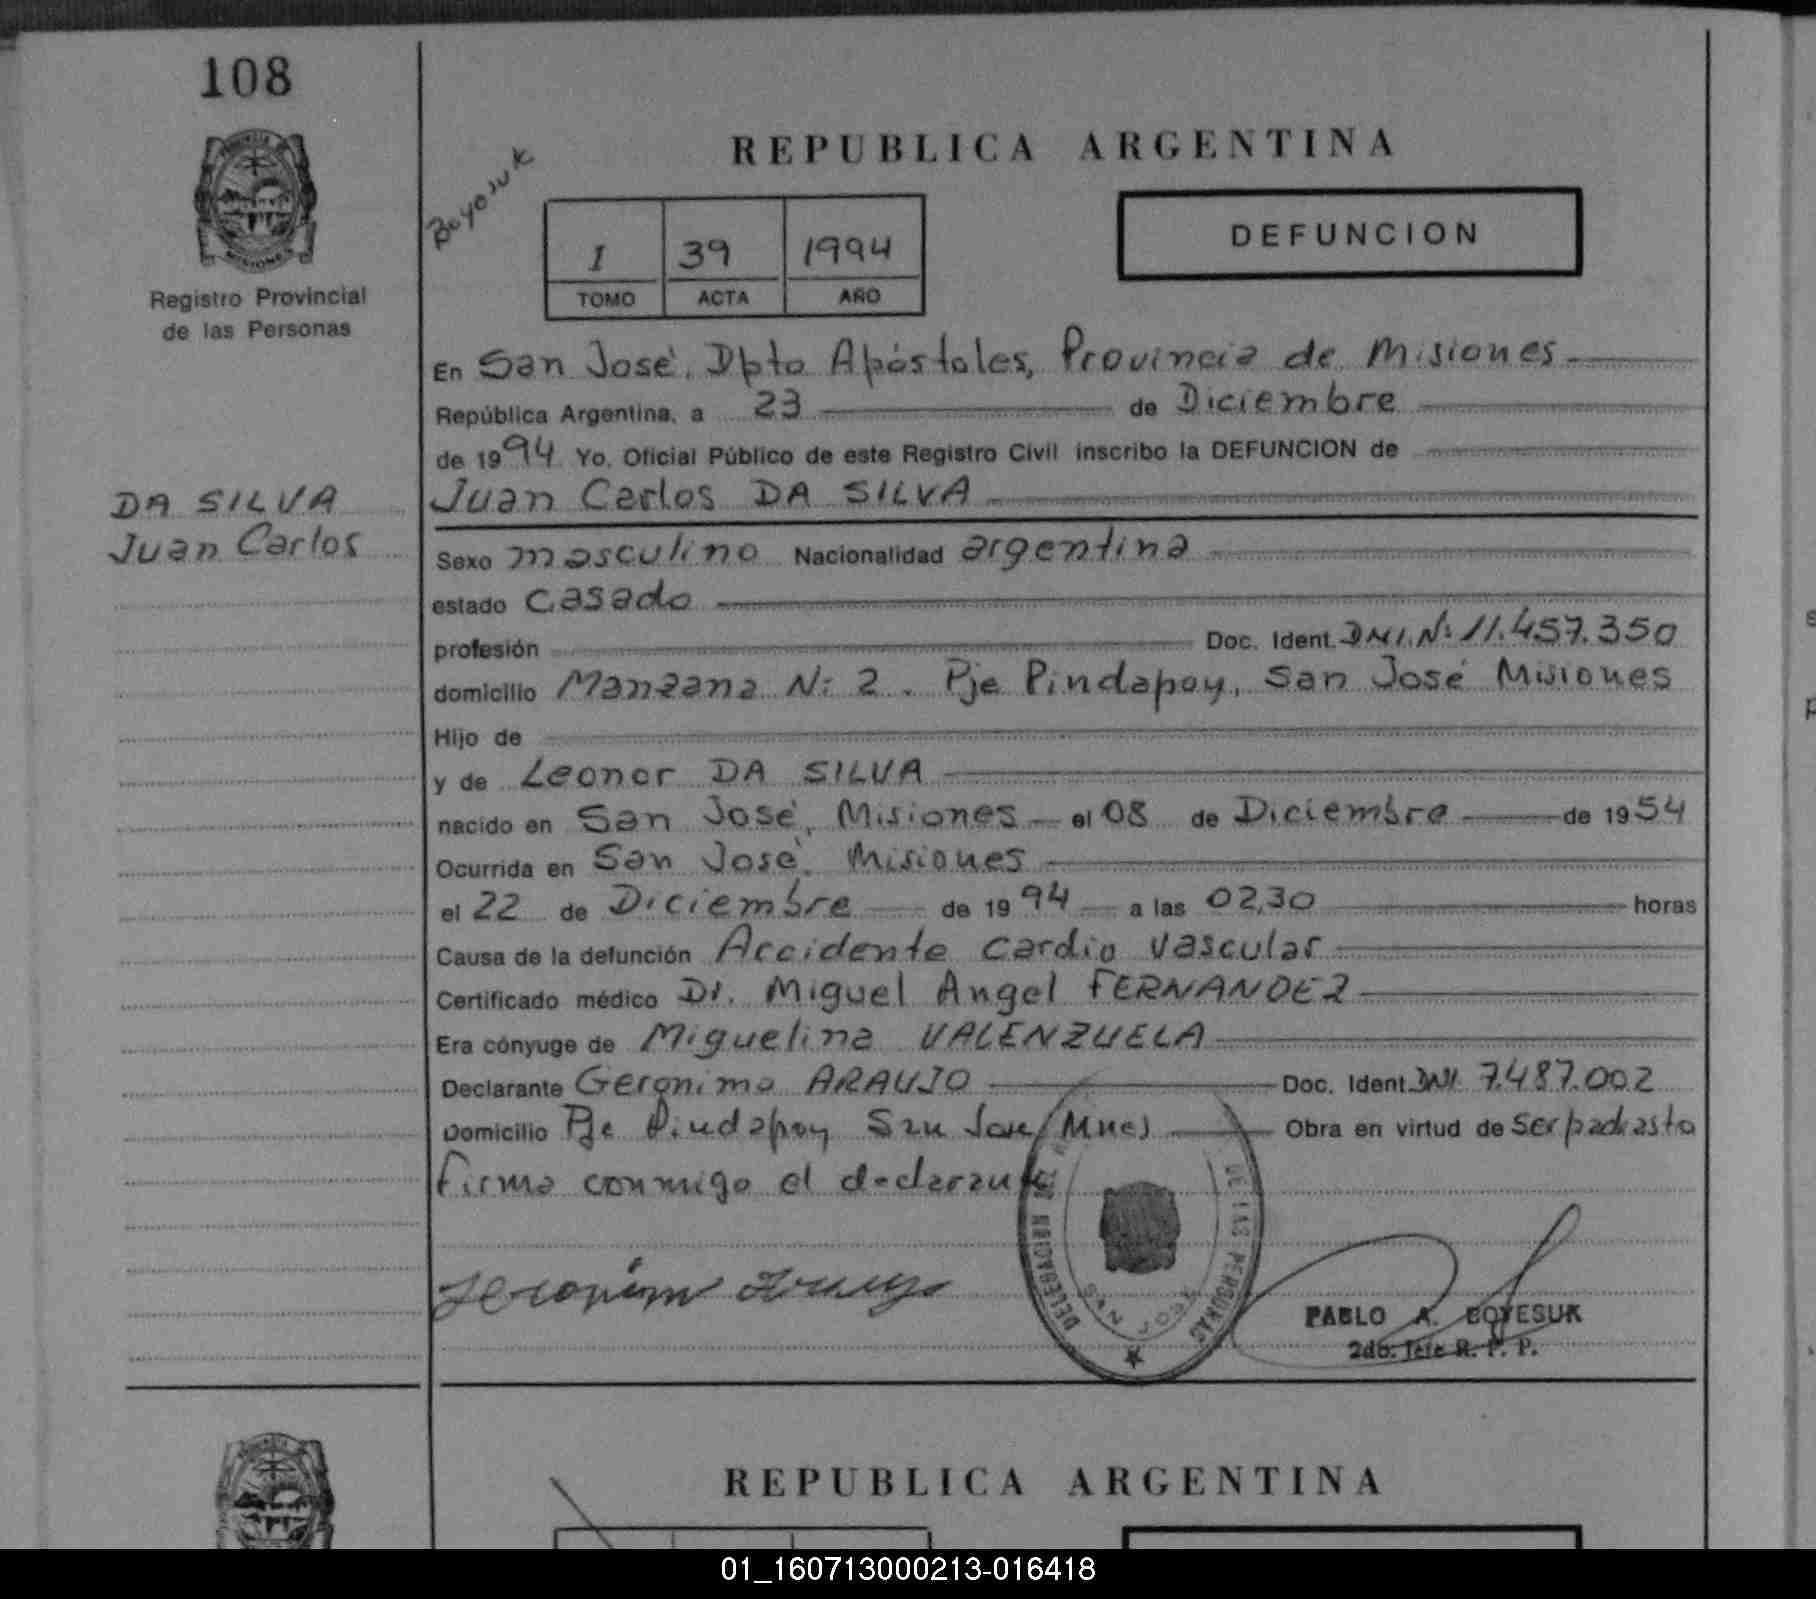 108
Registro Provincial
de las Personas
Boyosuk
REPUBLICA ARGENTINA
I 39 1994
TOMO ACTA AÑO
DEFUNCION
En San José, Dpto Apóstoles, Provincia de Misiones
República Argentina, a 23 de Diciembre
de 1994 Yo, Oficial Público de este Registro Civil inscribo la DEFUNCION de
Juan Carlos DA SILVA
DA SILVA
Juan Carlos
Sexo masculino Nacionalidad argentina
estado casado
profesión Doc. Ident. DNI. Nº 11.457.350
domicilio Manzana Nº 2. Pje Pindapoy, San José Misiones
Hijo de
y de Leonor DA SILVA
nacido en San José, Misiones el 08 de Diciembre de 1954
Ocurrida en San José, Misiones
el 22 de Diciembre de 1994 a las 02,30 horas
Causa de la defunción Accidente cardio vascular
Certificado médico Dr. Miguel Angel FERNANDEZ
Era cónyuge de Miguelina VALENZUELA
Declarante Geronimo ARAUJO Doc. Ident DNI 7.487.002
Domicilio Pje Pindapoy San Jose Mnes Obra en virtud de ser padrasto
Firma conmigo el declarante
DELEGACION DE LAS PERSONAS
SAN JOSE
PABLO A. BOYESUK
2do. Jefe R. P. P.
REPUBLICA ARGENTINA
01_160713000213-016418